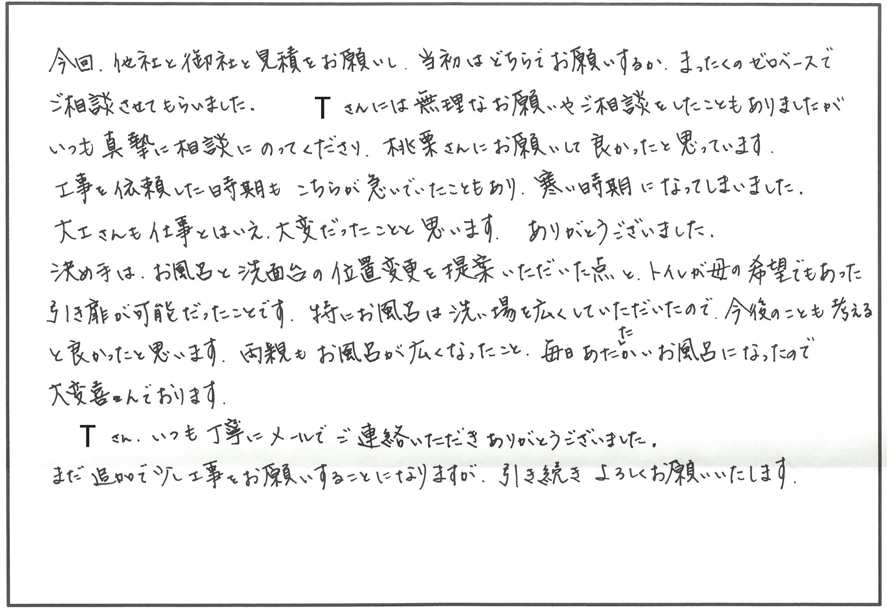 今回、他社と御社と見積をお願いし、当初はどちらでお願いするか、まったくのゼロベースで
ご相談させてもらいました。 Tさんには無理なお願いやご相談をしたこともありましたが
いつも真摯に相談にのってくださり、桃栗さんにお願いして良かったと思っています。
工事を依頼した時期もこちらが急いでいたこともあり、寒い時期になってしまいました。
大工さんも仕事とはいえ、大変だったことと思います。 ありがとうございました。
決め手は、お風呂と洗面台の位置変更を提案いただいた点と、トイレが母の希望でもあった
引き扉が可能だったことです。特にお風呂は洗い場を広くしていただいたので、今後のことも考える
と良かったと思います。両親もお風呂が広くなったこと、毎日あたたかいお風呂になったので
大変喜んでおります。
Tさん、いつも丁寧にメールでご連絡いただきありがとうございました。
まだ追加で少し工事をお願いすることになりますが、引き続きよろしくお願いいたします。